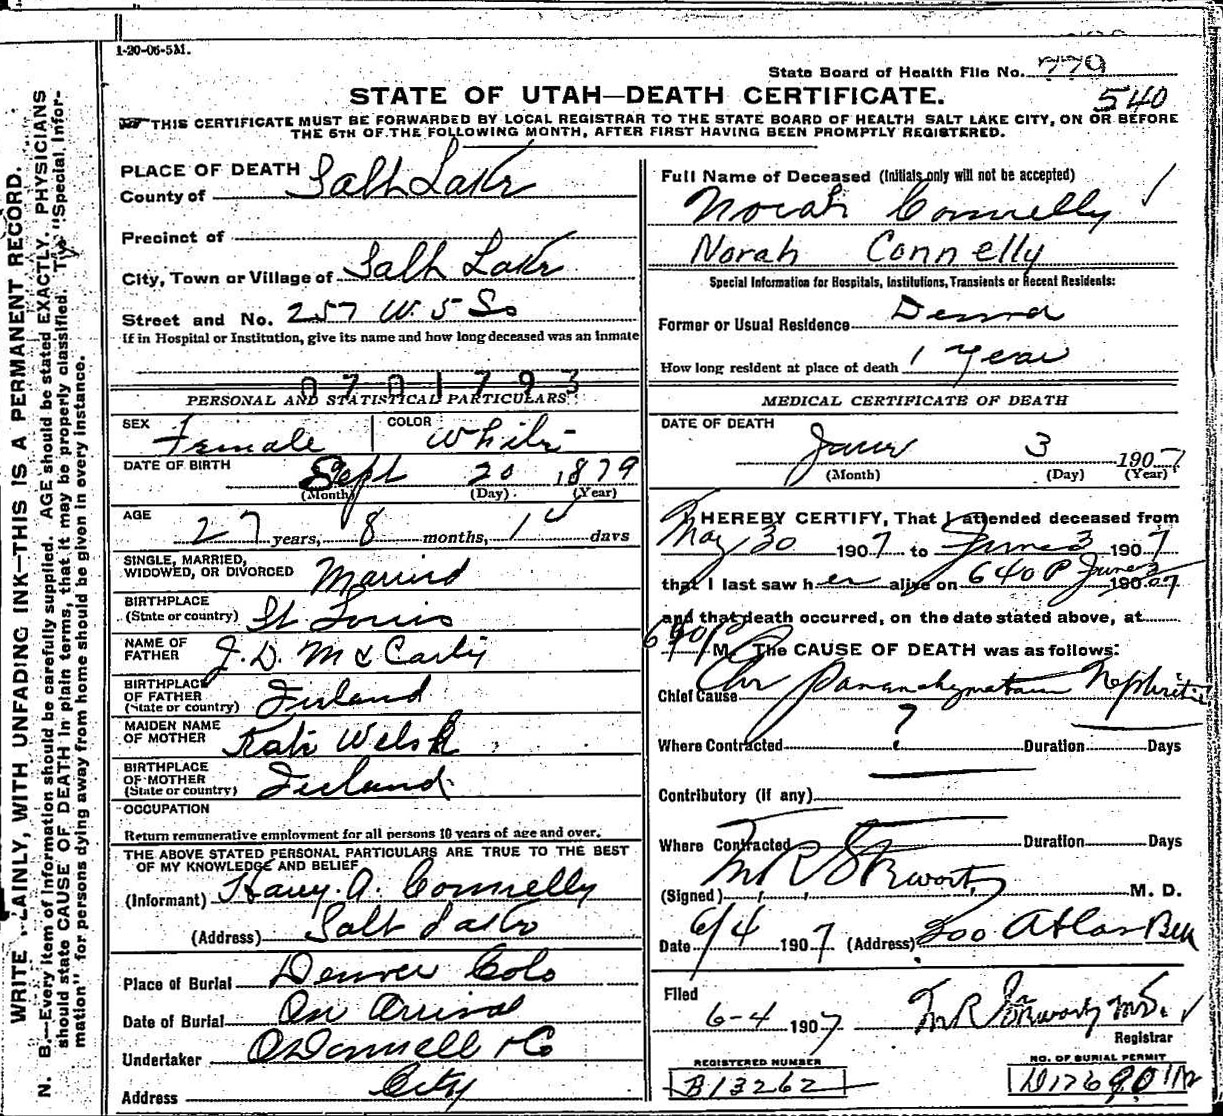 1-20-06-5M.
State Board of Health File No. 779
STATE OF UTAH—DEATH CERTIFICATE.
540
THIS CERTIFICATE MUST BE FORWARDED BY LOCAL REGISTRAR TO THE STATE BOARD OF HEALTH SALT LAKE CITY, ON OR BEFORE
THE 5TH OF THE FOLLOWING MONTH, AFTER FIRST HAVING BEEN PROMPTLY REGISTERED.
PLACE OF DEATH
County of Salt Lake
Precinct of
City, Town or Village of Salt Lake
Street and No. 257 W. 5 So
If in Hospital or Institution, give its name and how long deceased was an inmate
0701793
PERSONAL AND STATISTICAL PARTICULARS.
SEX Female COLOR White
DATE OF BIRTH Sept 20 1879
(Month) (Day) (Year)
AGE
27 years, 8 months, 14 days
SINGLE, MARRIED,
WIDOWED, OR DIVORCED Married
BIRTHPLACE
(State or country) St Louis
NAME OF
FATHER J. D. McCarty
BIRTHPLACE
OF FATHER
(State or country) Ireland
MAIDEN NAME
OF MOTHER Kate Welsh
BIRTHPLACE
OF MOTHER
(State or country) Ireland
OCCUPATION
Return remunerative employment for all persons 10 years of age and over.
THE ABOVE STATED PERSONAL PARTICULARS ARE TRUE TO THE BEST
OF MY KNOWLEDGE AND BELIEF
(Informant) Harry. A. Connelly
(Address) Salt Lake
Place of Burial Denver Colo
Date of Burial On Arrival
Undertaker O'Donnell & Co
Address City
Full Name of Deceased (Initials only will not be accepted)
Norah Connelly
Norah Connelly
Special Information for Hospitals, Institutions, Transients or Recent Residents:
Former or Usual Residence Denver
How long resident at place of death 1 Year
MEDICAL CERTIFICATE OF DEATH
DATE OF DEATH
June 3 1907
(Month) (Day) (Year)
I HEREBY CERTIFY, That I attended deceased from
May 30 1907 to June 3 1907
that I last saw her alive on 640 P June 3 1907
and that death occurred, on the date stated above, at
640 P M. The CAUSE OF DEATH was as follows:
Chief Cause Chr Parenchymatous Nephritis
Where Contracted ? Duration Days
Contributory (if any)
Where Contracted Duration Days
(Signed) M. D.
Date 6/4 1907 (Address) 200 Atlas Blk
Filed
6-4 1907
Registrar
REGISTERED NUMBER
B13262
NO. OF BURIAL PERMIT
WRITE PLAINLY, WITH UNFADING INK—THIS IS A PERMANENT RECORD.
N. B.—Every item of information should be carefully supplied. AGE should be stated EXACTLY. PHYSICIANS
should state CAUSE OF DEATH in plain terms, that it may be properly classified. The "Special Infor-
mation" for persons dying away from home should be given in every instance.